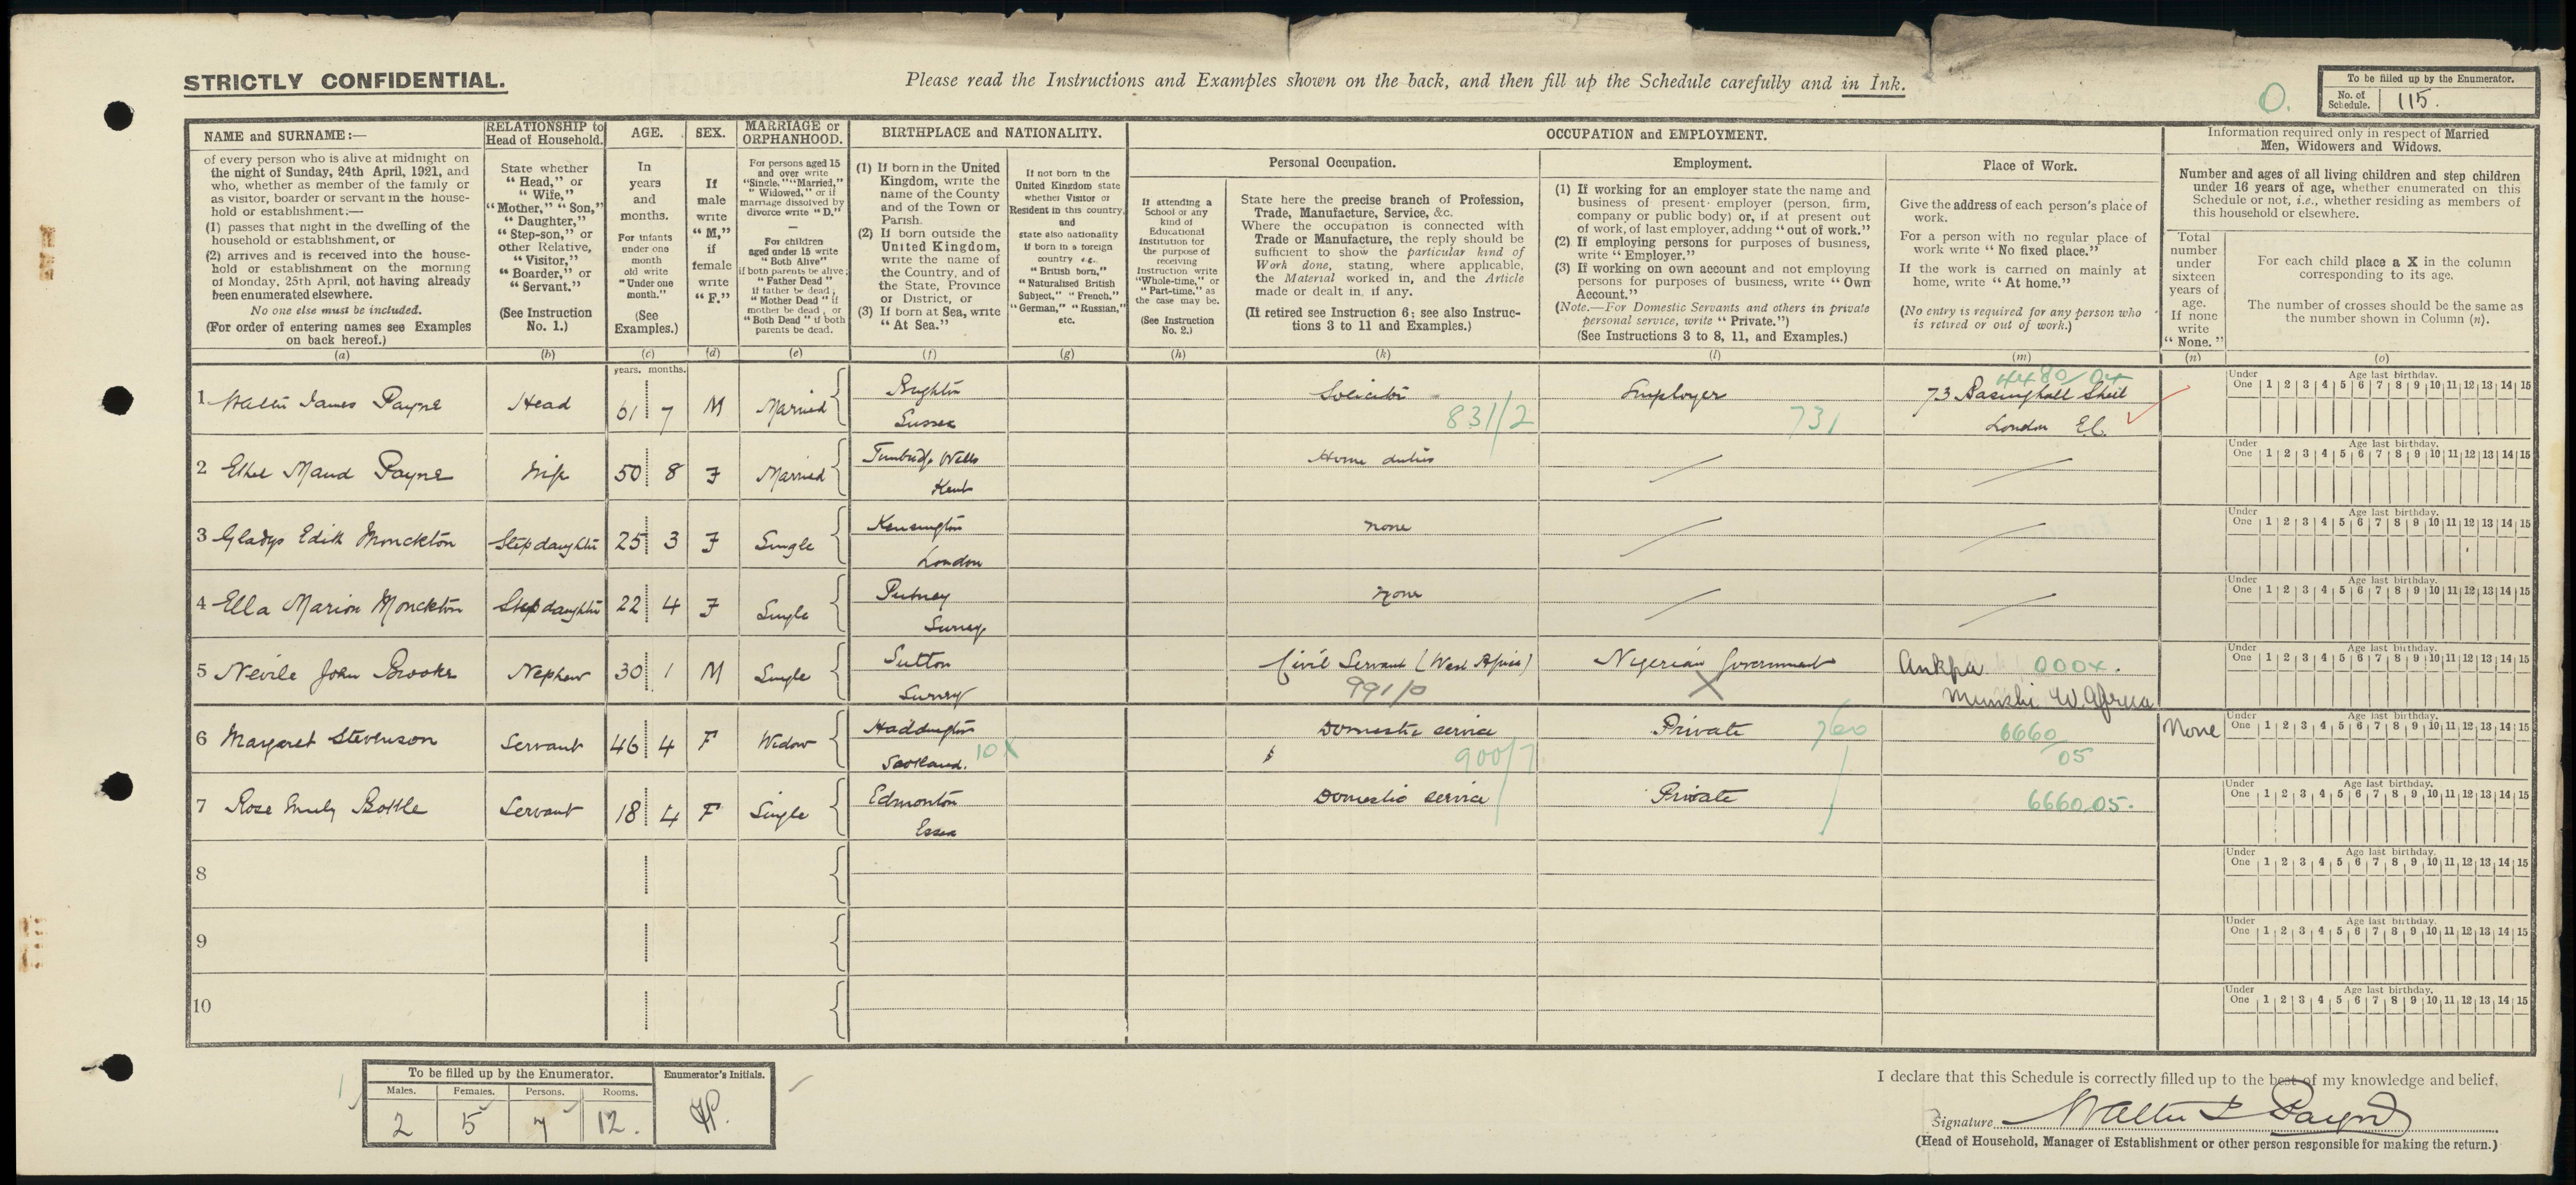 STRICTLY CONFIDENTIAL.
Please read the Instructions and Examples shown on the back, and then fill up the Schedule carefully and in Ink.
O.
To be filled up by the Enumerator.
No. of Schedule. 115.
NAME and SURNAME:—
of every person who is alive at midnight on
the night of Sunday, 24th April, 1921, and
who, whether as member of the family or
as visitor, boarder or servant in the house-
hold or establishment:—
(1) passes that night in the dwelling of the
household or establishment, or
(2) arrives and is received into the house-
hold or establishment on the morning
of Monday, 25th April, not having already
been enumerated elsewhere.
No one else must be included.
(For order of entering names see Examples
on back hereof.)
(a)
RELATIONSHIP to
Head of Household.
State whether
"Head," or
"Wife,"
"Mother," "Son,"
"Daughter,"
"Step-son," or
other Relative,
"Visitor,"
"Boarder," or
"Servant."
(See Instruction
No. 1.)
(b)
AGE.
In
years
and
months.
For infants
under one
month
old write
"Under one
month."
(See
Examples.)
(c)
SEX.
If
male
write
"M,"
if
female
write
"F."
(d)
MARRIAGE or
ORPHANHOOD.
For persons aged 15
and over write
"Single," "Married,"
"Widowed," or if
marriage dissolved by
divorce write "D."
—
For children
aged under 15 write
"Both Alive"
if both parents be alive;
"Father Dead"
if father be dead;
"Mother Dead" if
mother be dead, or
"Both Dead" if both
parents be dead.
(e)
BIRTHPLACE and NATIONALITY.
(1) If born in the United
Kingdom, write the
name of the County
and of the Town or
Parish.
(2) If born outside the
United Kingdom,
write the name of
the Country, and of
the State, Province
or District, or
(3) If born at Sea, write
"At Sea."
(f)
If not born in the
United Kingdom state
whether Visitor or
Resident in this country,
and
state also nationality
if born in a foreign
country e.g.
"British born,"
"Naturalised British
Subject," "French,"
"German," "Russian,"
etc.
(g)
OCCUPATION and EMPLOYMENT.
If attending a
School or any
kind of
Educational
Institution for
the purpose of
receiving
Instruction write
"Whole-time," or
"Part-time," as
the case may be.
(See Instruction
No. 2.)
(h)
Personal Occupation.
State here the precise branch of Profession,
Trade, Manufacture, Service, &c.
Where the occupation is connected with
Trade or Manufacture, the reply should be
sufficient to show the particular kind of
Work done, stating, where applicable,
the Material worked in, and the Article
made or dealt in, if any.
(If retired see Instruction 6; see also Instruc-
tions 3 to 11 and Examples.)
(k)
Employment.
(1) If working for an employer state the name and
business of present employer (person, firm,
company or public body) or, if at present out
of work, of last employer, adding "out of work."
(2) If employing persons for purposes of business,
write "Employer."
(3) If working on own account and not employing
persons for purposes of business, write "Own
Account."
(Note.—For Domestic Servants and others in private
personal service, write "Private.")
(See Instructions 3 to 8, 11, and Examples.)
(l)
Place of Work.
Give the address of each person's place of
work.
For a person with no regular place of
work write "No fixed place."
If the work is carried on mainly at
home, write "At home."
(No entry is required for any person who
is retired or out of work.)
(m)
Information required only in respect of Married
Men, Widowers and Widows.
Number and ages of all living children and step children
under 16 years of age, whether enumerated on this
Schedule or not, i.e., whether residing as members of
this household or elsewhere.
Total
number
under
sixteen
years of
age.
If none
write
"None."
(n)
For each child place a X in the column
corresponding to its age.
The number of crosses should be the same as
the number shown in Column (n).
(o)
years. months.
1 Walter James Payne Head 61 7 M Married Brighton Sussex Solicitor 831/2 Employer 731 4480/04 73 Basinghall Street London E.C.
Under One 1 2 3 4 5 6 7 8 9 10 11 12 13 14 15 Age last birthday.
2 Ethel Maud Payne Wife 50 8 F Married Tunbridge Wells Kent Home duties
Under One 1 2 3 4 5 6 7 8 9 10 11 12 13 14 15 Age last birthday.
3 Gladys Edith Monckton Stepdaughter 25 3 F Single Kensington London none
Under One 1 2 3 4 5 6 7 8 9 10 11 12 13 14 15 Age last birthday.
4 Ella Marion Monckton Stepdaughter 22 4 F Single Putney Surrey none
Under One 1 2 3 4 5 6 7 8 9 10 11 12 13 14 15 Age last birthday.
5 Nevile John Brooke Nephew 30 1 M Single Sutton Surrey Civil Servant (West Africa) 991/0 Nigerian Government X Ankpa 000X. Munshi W. Africa
Under One 1 2 3 4 5 6 7 8 9 10 11 12 13 14 15 Age last birthday.
6 Margaret Stevenson Servant 46 4 F Widow Haddington Scotland. 10X Domestic service 900/7 Private 760 6660/05 None
Under One 1 2 3 4 5 6 7 8 9 10 11 12 13 14 15 Age last birthday.
7 Rose Emily Bottle Servant 18 4 F Single Edmonton Essex Domestic service Private 6660,05.
Under One 1 2 3 4 5 6 7 8 9 10 11 12 13 14 15 Age last birthday.
8
Under One 1 2 3 4 5 6 7 8 9 10 11 12 13 14 15 Age last birthday.
9
Under One 1 2 3 4 5 6 7 8 9 10 11 12 13 14 15 Age last birthday.
10
Under One 1 2 3 4 5 6 7 8 9 10 11 12 13 14 15 Age last birthday.
To be filled up by the Enumerator.
Enumerator's Initials.
Males. Females. Persons. Rooms.
2 5 7 12.
I declare that this Schedule is correctly filled up to the best of my knowledge and belief.
Signature Walter J Payne
(Head of Household, Manager of Establishment or other person responsible for making the return.)